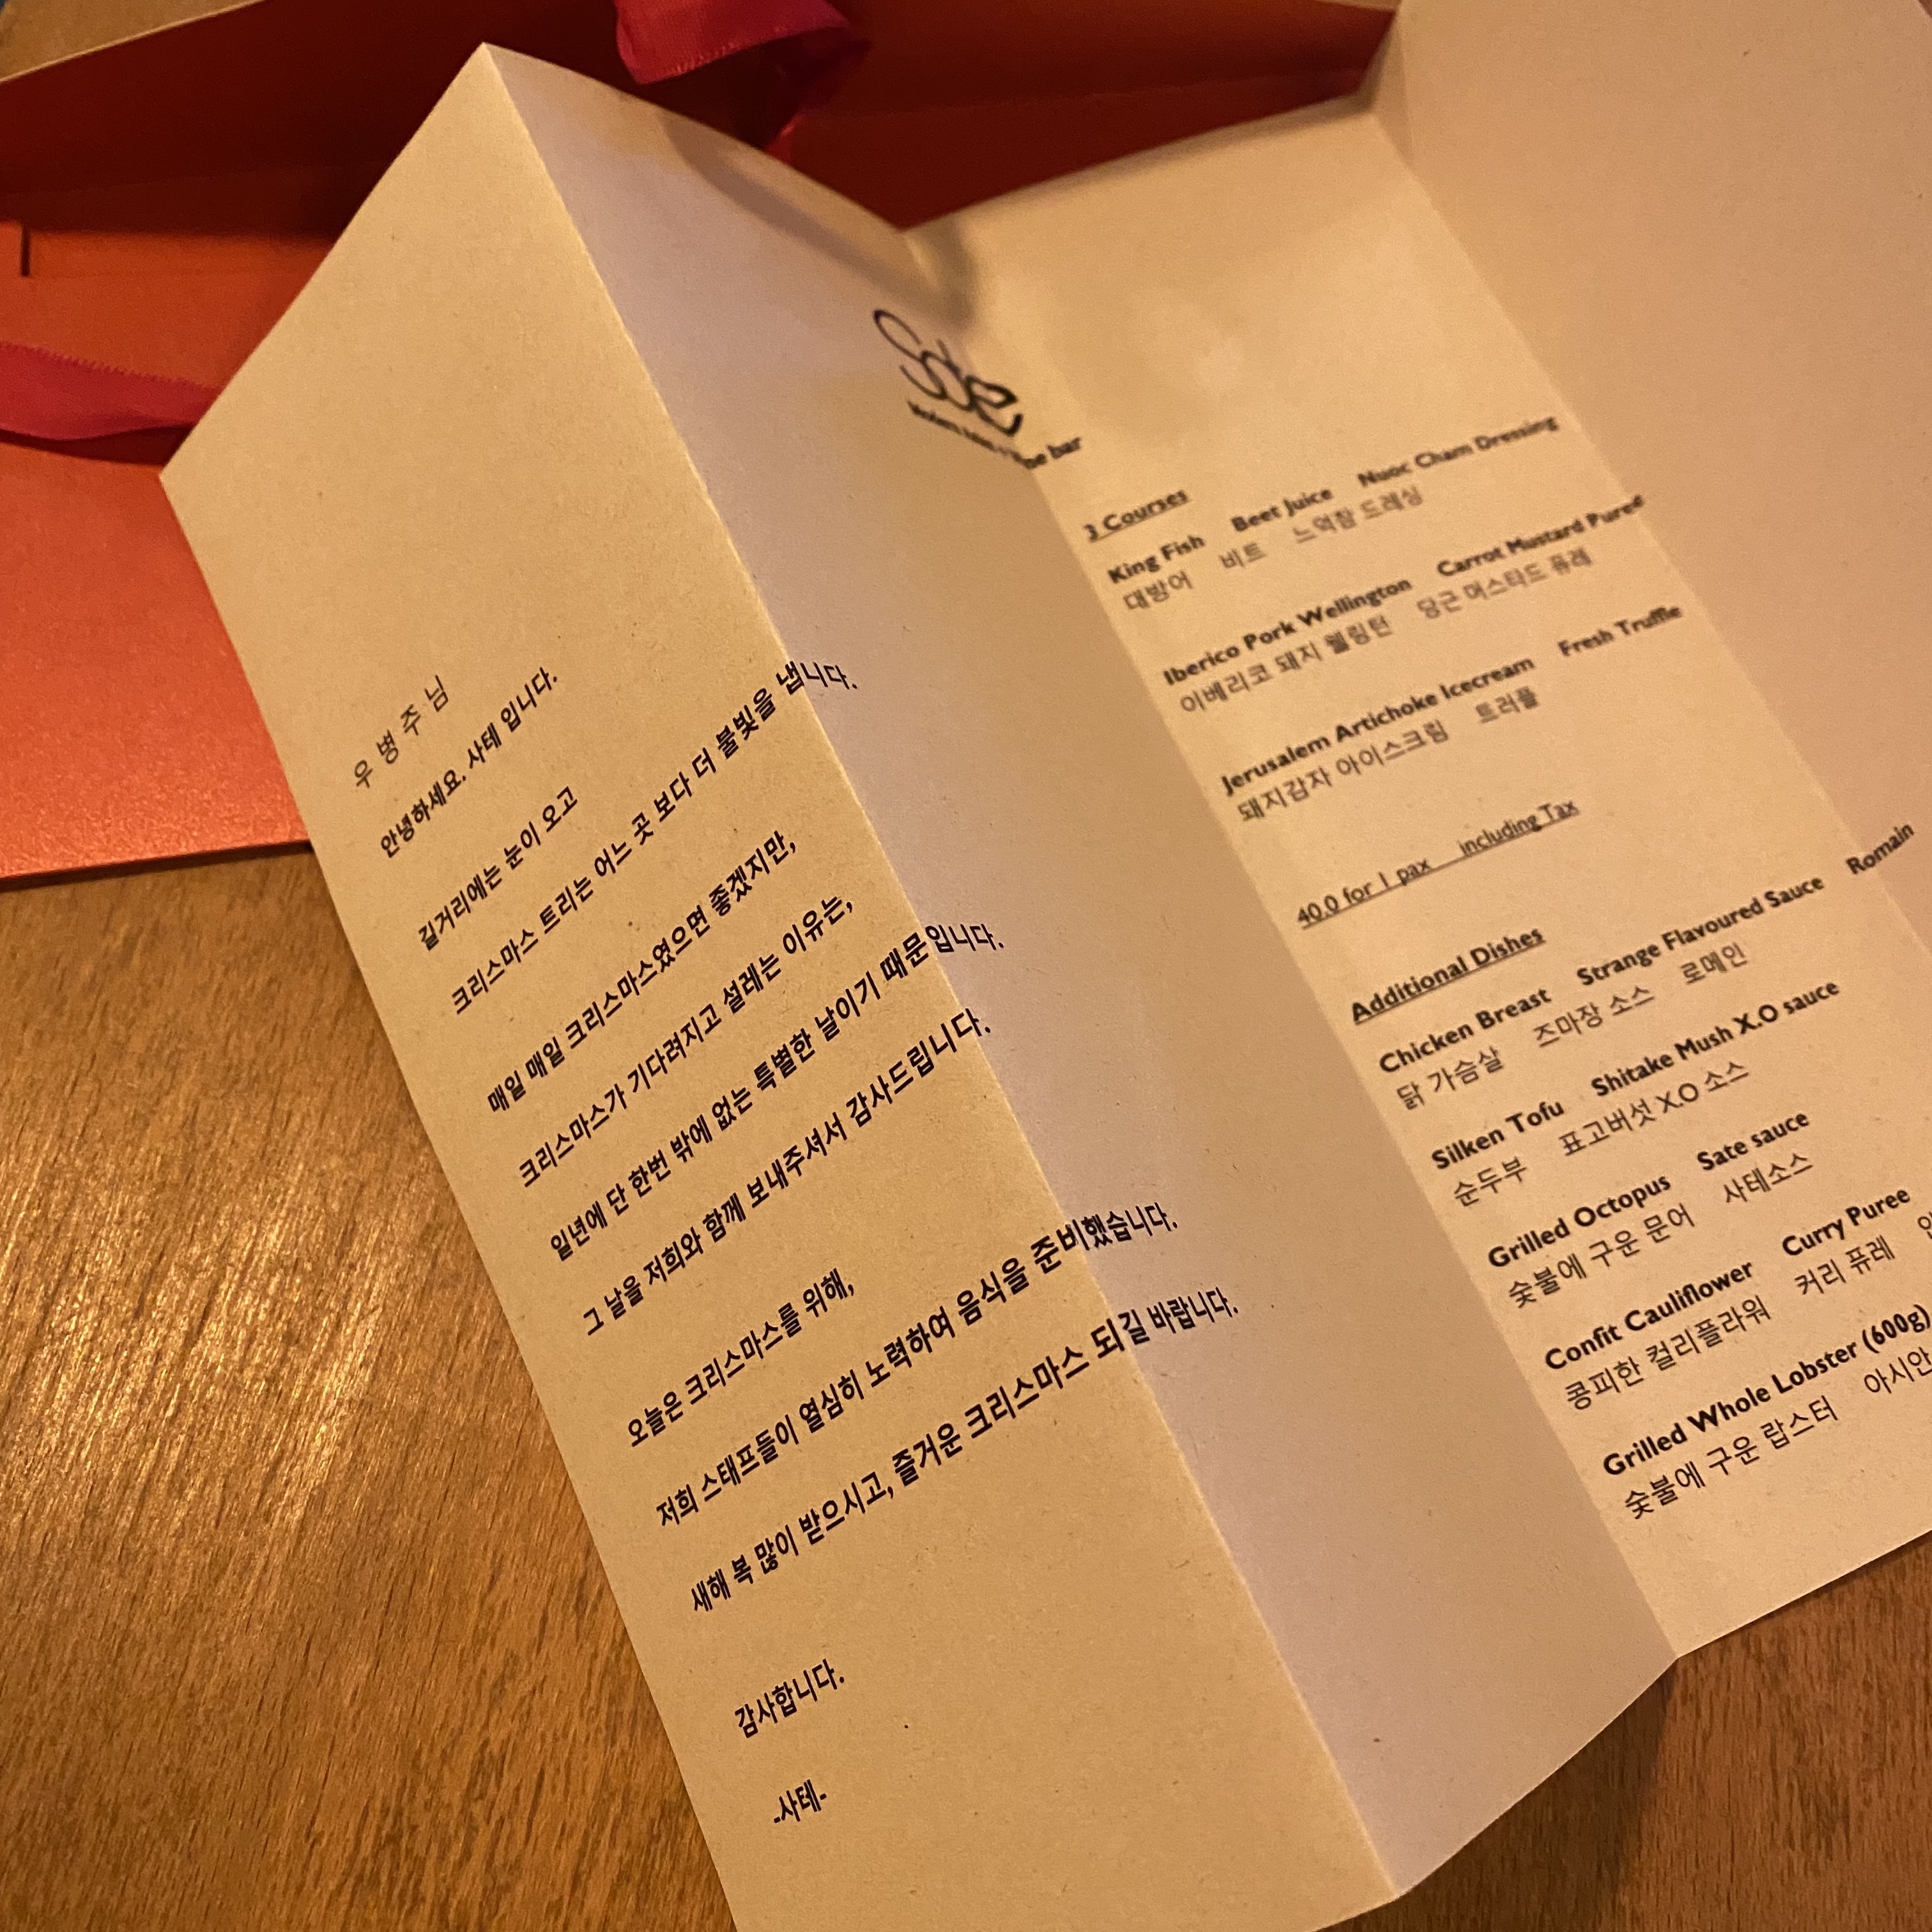 우병주님
안녕하세요. 사테 입니다.
길거리에는 눈이 오고
크리스마스 트리는 어느 곳 보다 더 불빛을 냅니다.
매일 매일 크리스마스였으면 좋겠지만,
크리스마스가 기다려지고 설레는 이유는,
일년에 단 한번 밖에 없는 특별한 날이기 때문입니다.
그 날을 저희와 함께 보내주셔서 감사드립니다.
오늘은 크리스마스를 위해,
저희 스태프들이 열심히 노력하여 음식을 준비했습니다.
새해 복 많이 받으시고, 즐거운 크리스마스 되길 바랍니다.
감사합니다.
-사테-
Sate
bar
3 Courses
King Fish Beet Juice Nuoc Cham Dressing
대방어 비트 느억참 드레싱
Iberico Pork Wellington Carrot Mustard Puree
이베리코 돼지 웰링턴 당근 머스타드 퓨레
Jerusalem Artichoke Icecream Fresh Truffle
돼지감자 아이스크림 트러플
40.0 for 1 pax including Tax
Additional Dishes
Chicken Breast Strange Flavoured Sauce Romain
닭 가슴살 즈마장 소스 로메인
Silken Tofu Shitake Mush X.O sauce
순두부 표고버섯 X.O 소스
Grilled Octopus Sate sauce
숯불에 구운 문어 사테소스
Confit Cauliflower Curry Puree
콩피한 컬리플라워 커리 퓨레
Grilled Whole Lobster (600g)
숯불에 구운 랍스터 아시안